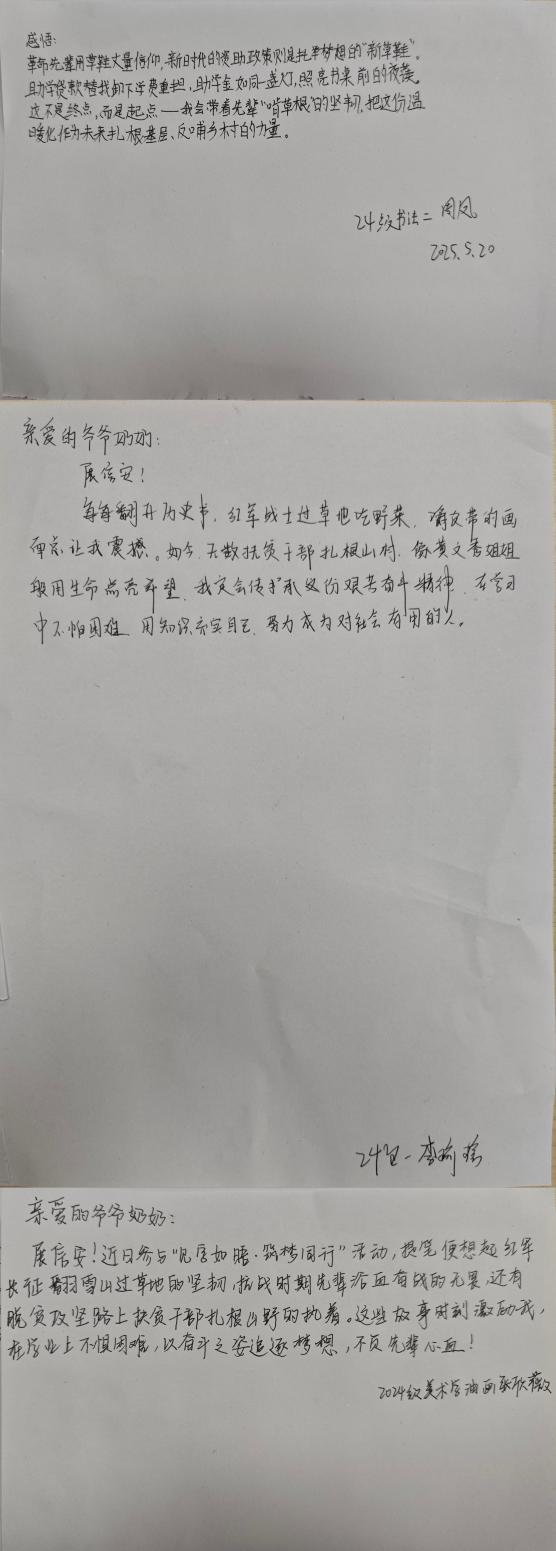 感悟:
革命先辈用草鞋丈量信仰,新时代的资助政策则是托举梦想的“新草鞋”。
助学贷款替我卸下学费重担,助学金如同一盏灯,照亮书桌前的夜晚
这不是终点,而是起点——我会带着先辈“啃草根”的坚韧,把这份温
暖化作为未来扎根基层、反哺乡村的力量。
24级书法二 周凤
2025.5.20
亲爱的爷爷奶奶:
展信安!
每每翻开历史书,红军战士过草地吃野菜、嚼皮带的画
面总让我震撼。如今,无数扶贫干部扎根山村,像黄文秀姐姐
般用生命点亮希望,我定会传承这份艰苦奋斗精神,在学习
中不怕困难,用知识充实自己,努力成为对社会有用的人。
24 一 李
亲爱的爷爷奶奶:
展信安!近日参与“见字如晤·筑梦同行”活动,提笔便想起红军
长征翻雪山过草地的坚韧,抗战时期先辈浴血奋战的无畏,还有
脱贫攻坚路上扶贫干部扎根山野的执着。这些故事时刻激励我,
在学业上不惧困难,以奋斗之姿追逐梦想,不负先辈心血!
2024级美术学油画张欣薇